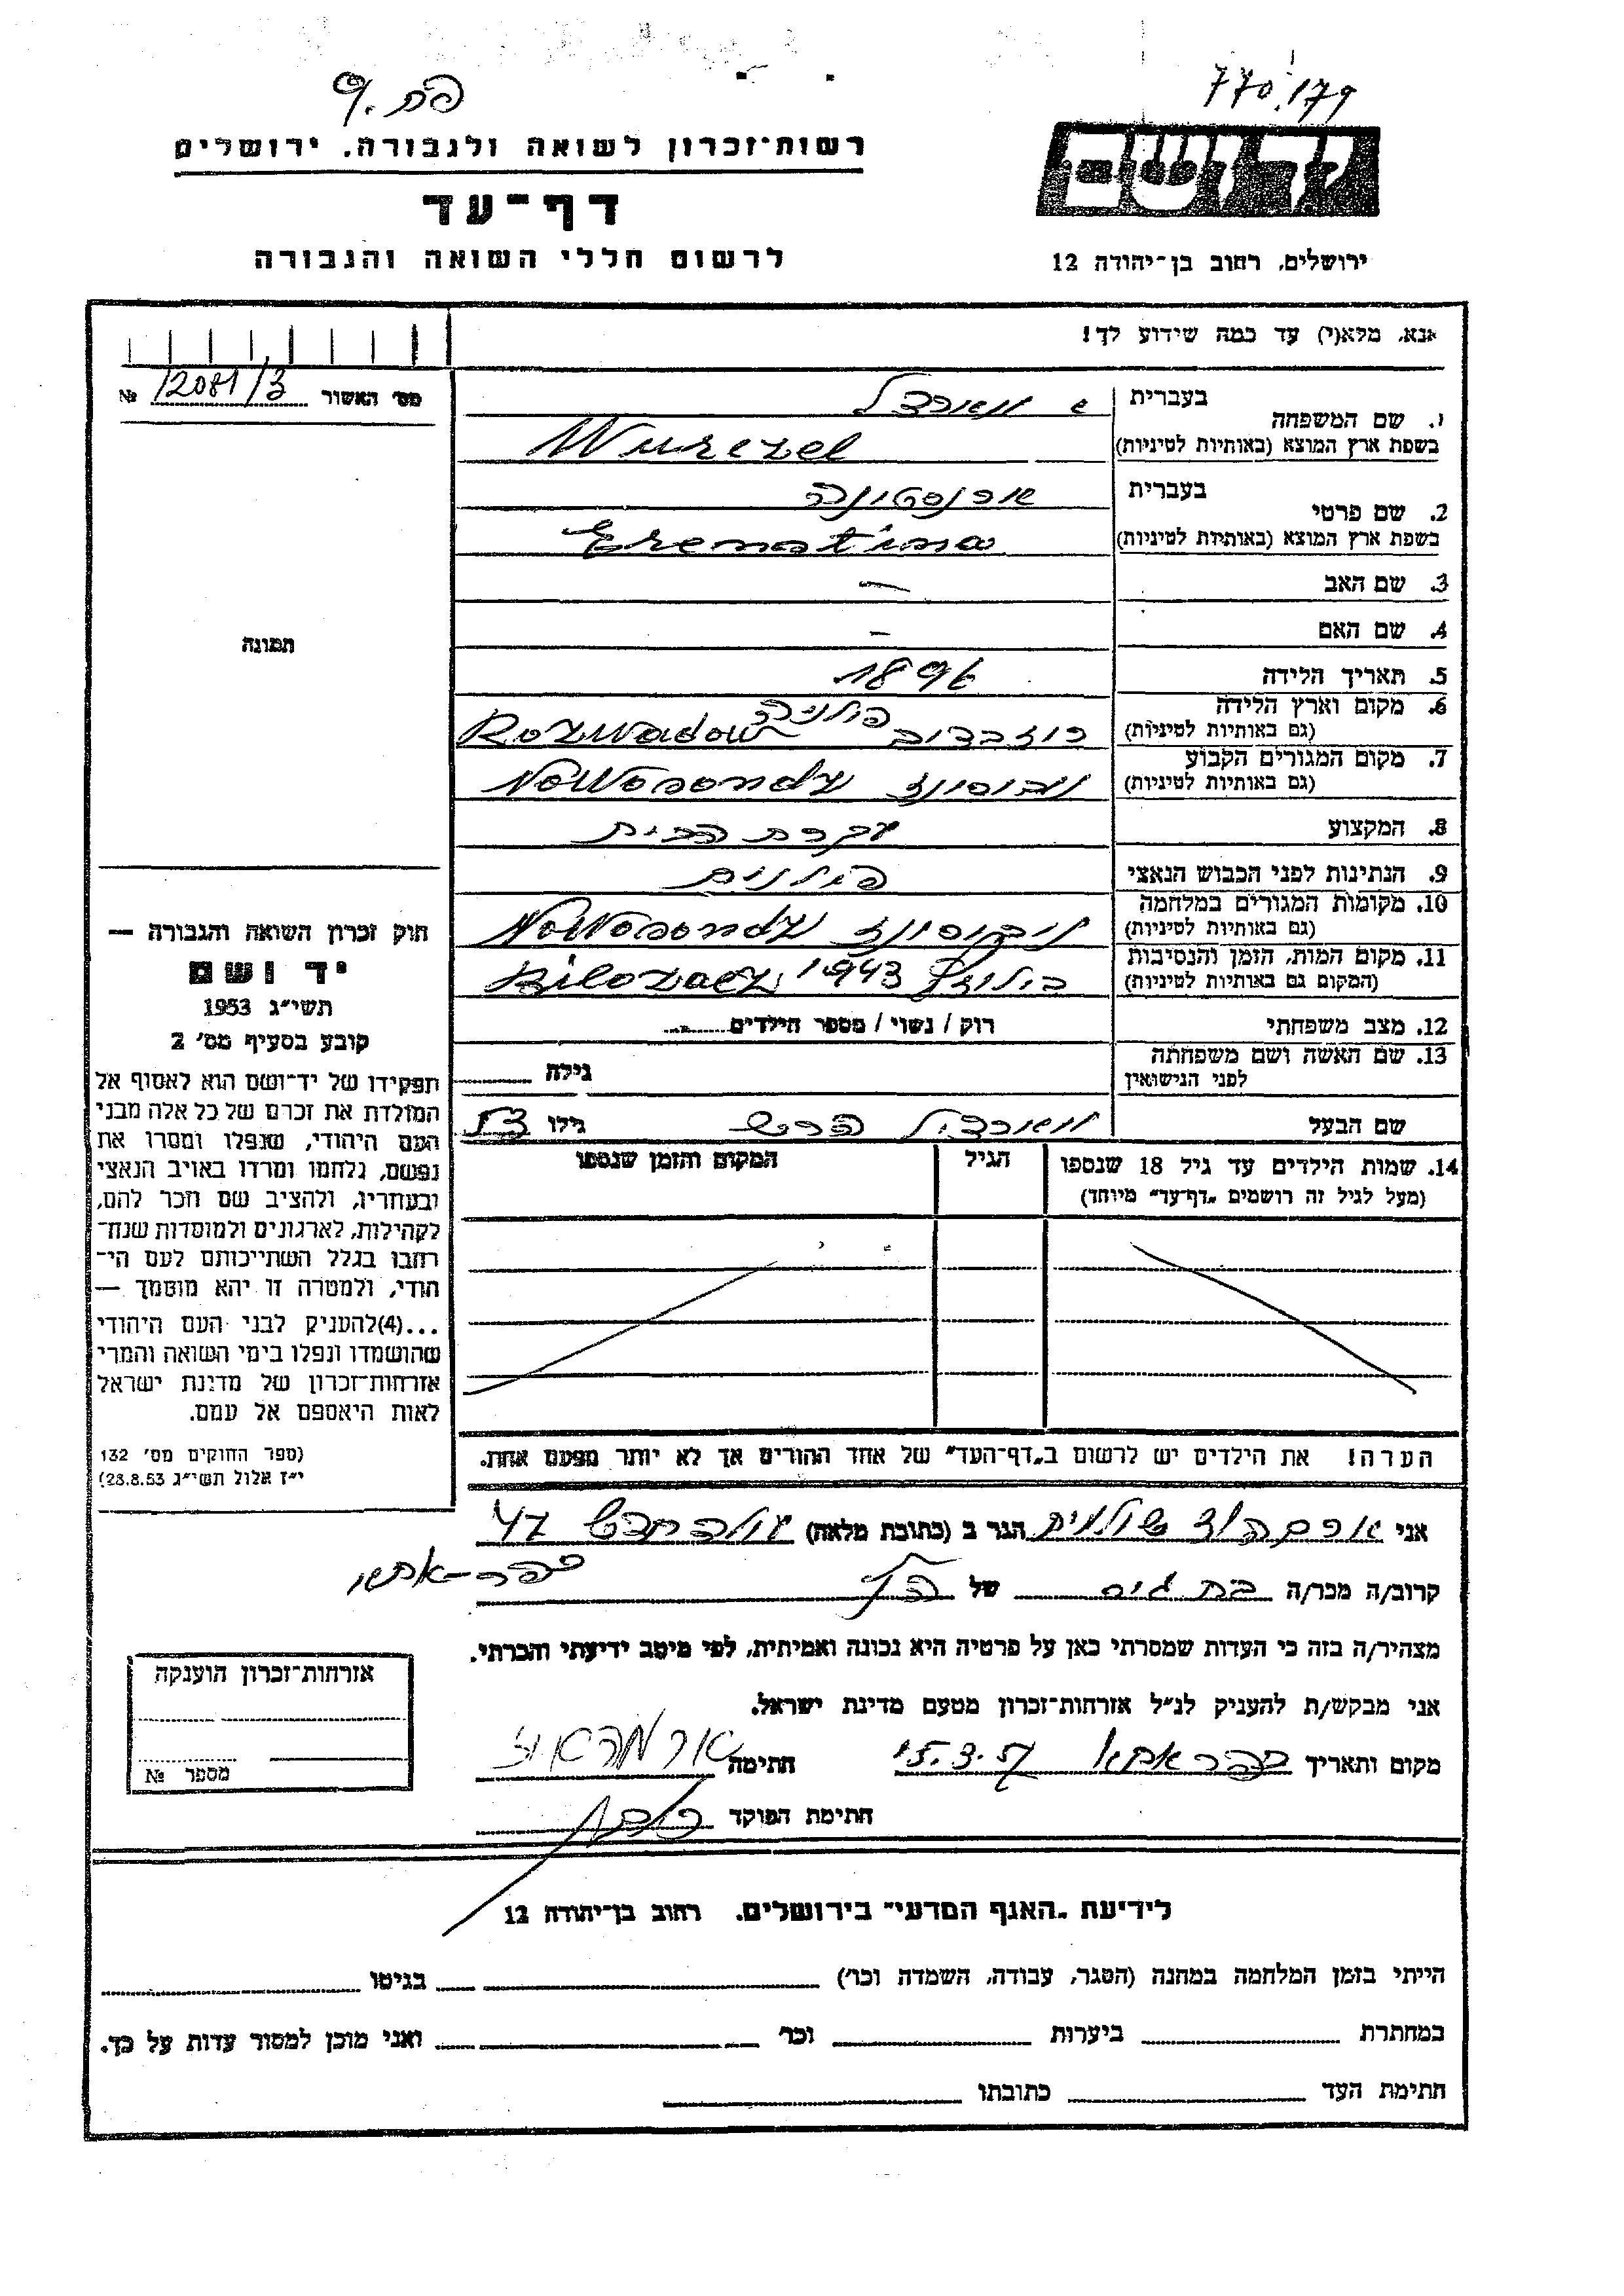 770.179
רשות־זכרון לשואה ולגבורה. ירושלים
דף־עד
לרשום חללי השואה והגבורה
ירושלים, רחוב בן־יהודה 12
אנא, מלא(י) עד כמה שידוע לך!
מס' האשור 12081/3 №
תמונה
1. שם המשפחה
בעברית
בשפת ארץ המוצא (באותיות לטיניות) Wurezel
2. שם פרטי
בעברית ארנסטינה
בשפת ארץ המוצא (באותיות לטיניות) Erenstina
3. שם האב —
4. שם האם —
5. תאריך הלידה 1896
6. מקום וארץ הלידה
(גם באותיות לטיניות) רוזבדוב פולניה Rozwadow
7. מקום המגורים הקבוע
(גם באותיות לטיניות) Nowosondz
8. המקצוע עקרת הבית
9. הנתינות לפני הכבוש הנאצי פולנית
10. מקומות המגורים במלחמה
(גם באותיות לטיניות) Nowosondz
11. מקום המות, הזמן והנסיבות
(המקום גם באותיות לטיניות) 1943
12. מצב משפחתי רוק / נשוי / מספר הילדים
13. שם האשה ושם משפחתה
לפני הנישואין
גילה
שם הבעל הרש גילו
14. שמות הילדים עד גיל 18 שנספו
(מעל לגיל זה רושמים „דף־עד" מיוחד)
הגיל
המקום והזמן שנספו
הערה! את הילדים יש לרשום ב„דף־העד" של אחד ההורים אך לא יותר מפעם אחת.
חוק זכרון השואה והגבורה —
יד ושם
תשי"ג 1953
קובע בסעיף מס' 2
תפקידו של יד־ושם הוא לאסוף אל
המולדת את זכרם של כל אלה מבני
העם היהודי, שנפלו ומסרו את
נפשם, נלחמו ומרדו באויב הנאצי
ובעוזריו, ולהציב שם וזכר להם,
לקהילות, לארגונים ולמוסדות שנח־
רבו בגלל השתייכותם לעם הי־
הודי, ולמטרה זו יהא מוסמך —
...(4)להעניק לבני העם היהודי
שהושמדו ונפלו בימי השואה והמרי
אזרחות־זכרון של מדינת ישראל
לאות היאספם אל עמם.
(ספר החוקים מס' 132
י"ז אלול תשי"ג 28.8.53)
אני שולמית הגר ב (כתובת מלאה)
קרוב/ה מכר/ה של הנ"ל
מצהיר/ה בזה כי העדות שמסרתי כאן על פרטיה היא נכונה ואמיתית, לפי מיטב ידיעתי והכרתי.
אני מבקש/ת להעניק לנ"ל אזרחות־זכרון מטעם מדינת ישראל.
מקום ותאריך כפר אתא 15.3.57 חתימה
חתימת הפוקד
אזרחות־זכרון הוענקה
מספר №
לידיעת „האגף המדעי" בירושלים. רחוב בן־יהודה 12
הייתי בזמן המלחמה במחנה (הסגר, עבודה, השמדה וכו') בגיטו
במחתרת ביערות וכו' ואני מוכן למסור עדות על כך.
חתימת העד כתובתו